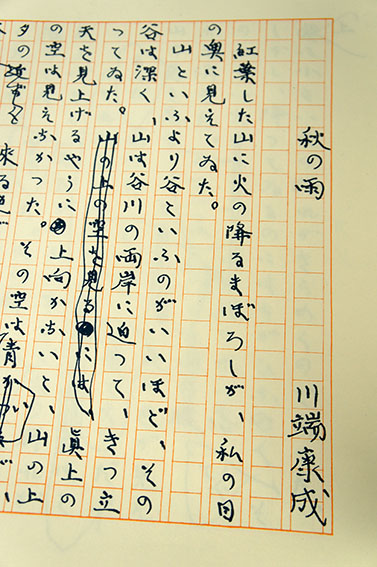 秋の雨 川端康成
紅葉した山に火の降るまぼろしが、私の目
の奥に見えてゐた。
山といふより谷といふのがいいほど、その
谷は深く、山は谷川の両岸に迫つて、きつ立
つてゐた。山の上の空を見るには眞上の
天を見上げるやうに上向かないと、山の上
の空は見えなかつた。その空は青
夕の 来る